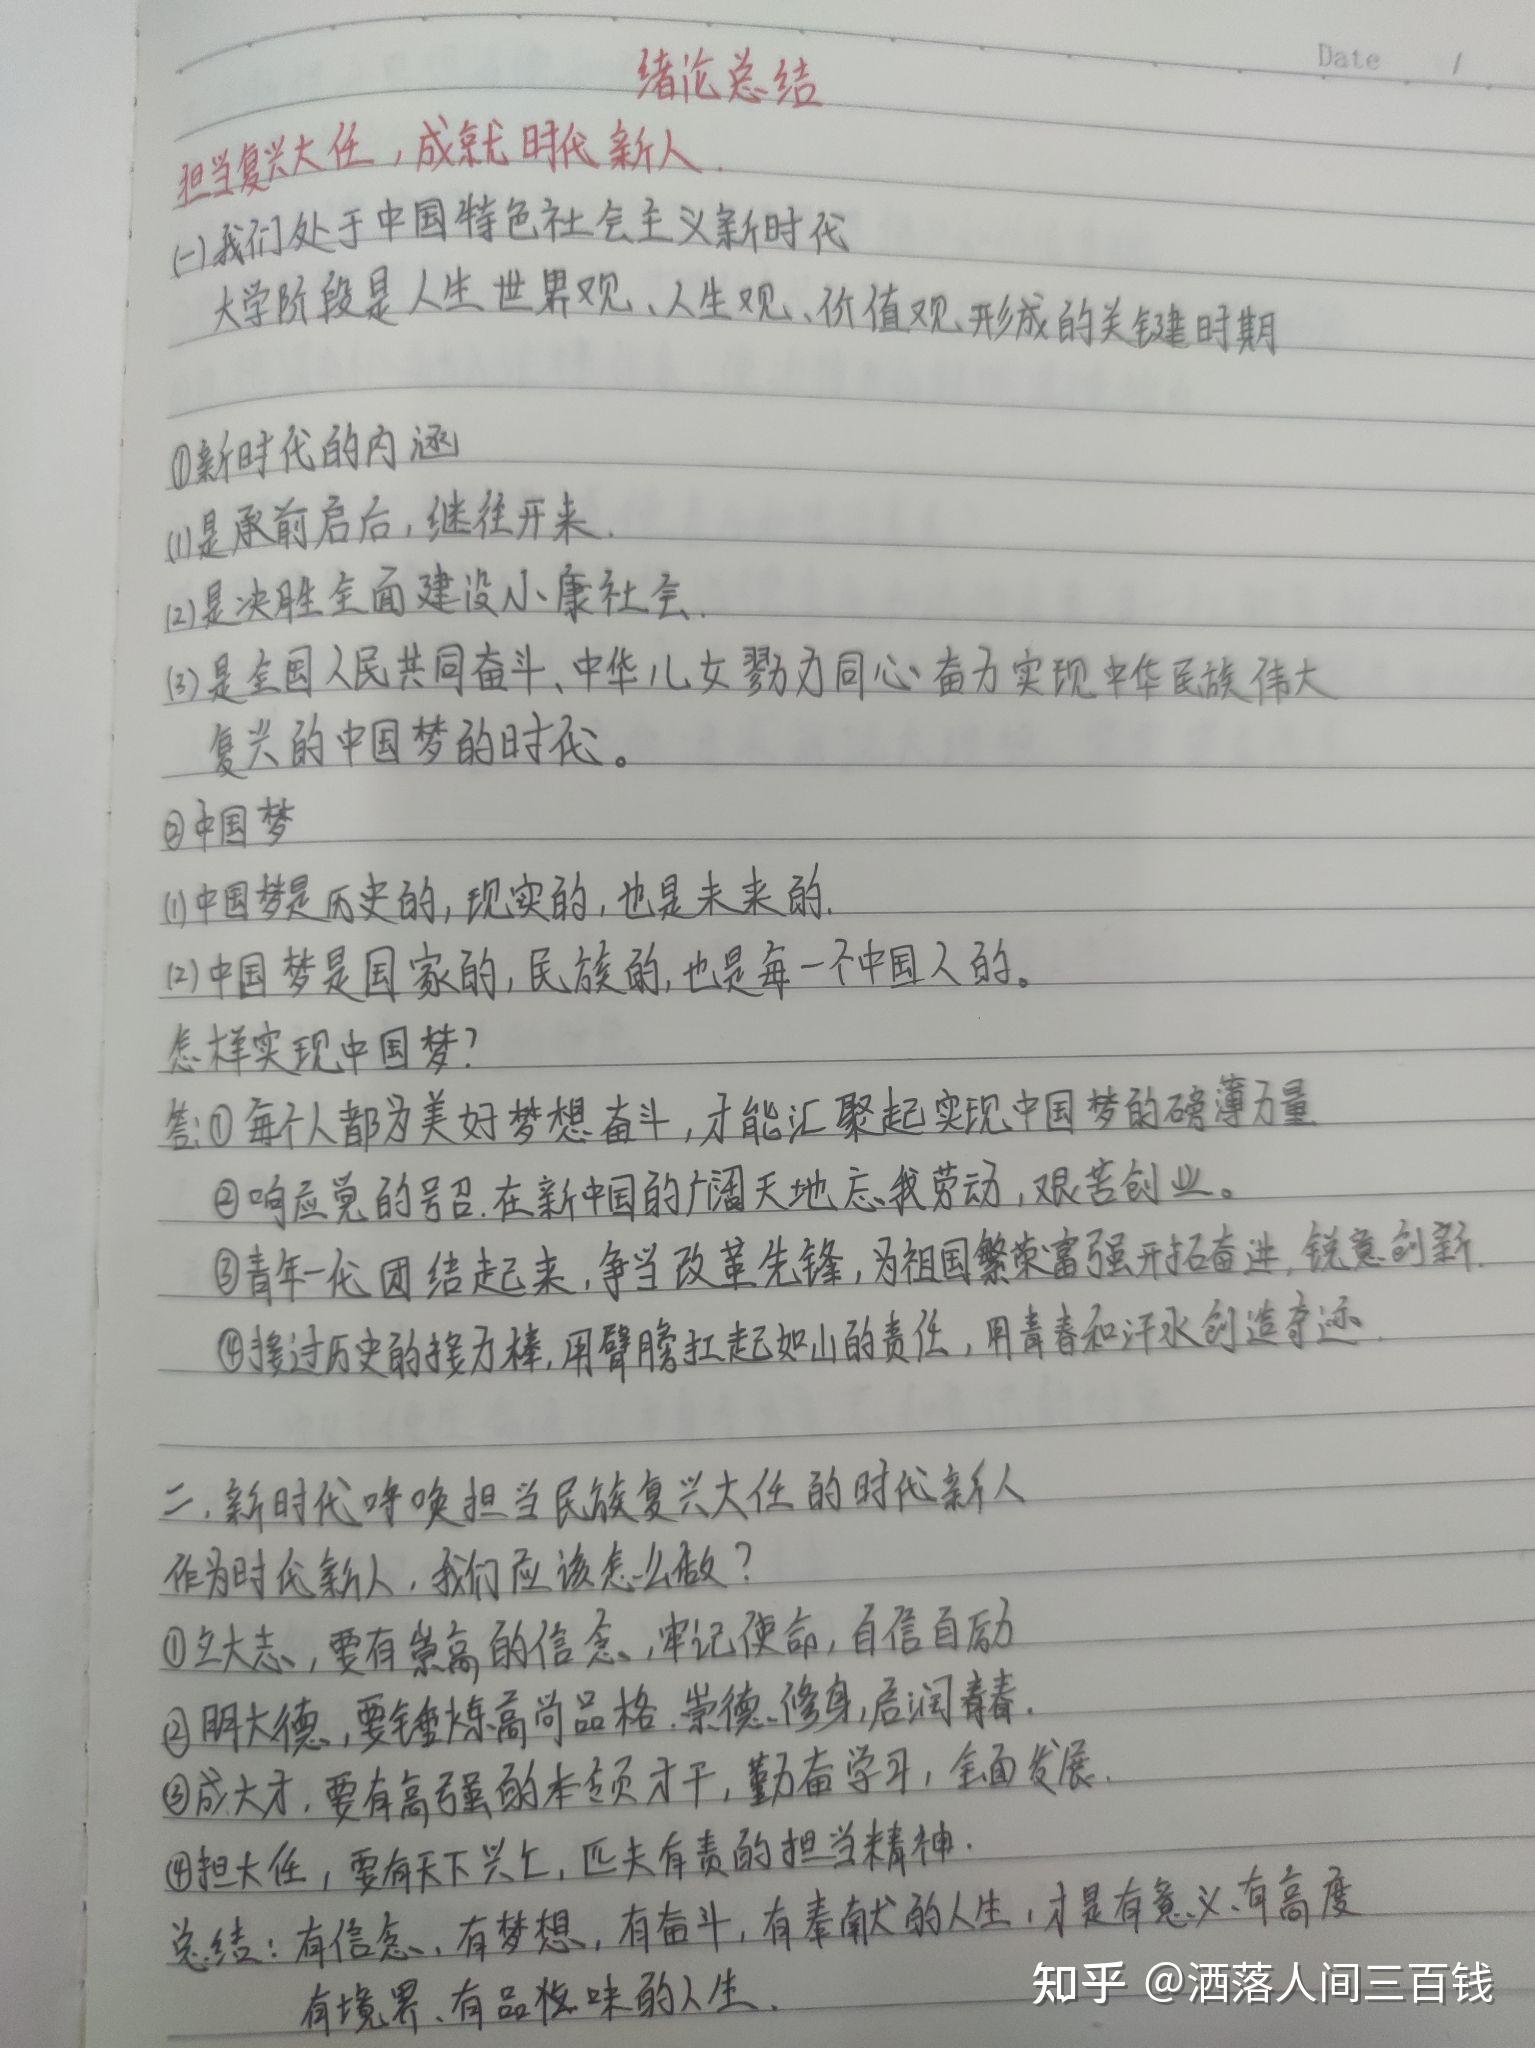 Date /
绪论总结
担当复兴大任，成就时代新人.
(一)我们处于中国特色社会主义新时代
大学阶段是人生世界观、人生观、价值观、形成的关键时期
①新时代的内涵
(1)是承前启后，继往开来.
(2)是决胜全面建设小康社会.
(3)是全国人民共同奋斗、中华儿女勠力同心奋力实现中华民族伟大
复兴的中国梦的时代。
②中国梦
(1)中国梦是历史的，现实的，也是未来的.
(2)中国梦是国家的，民族的，也是每一个中国人的。
怎样实现中国梦？
答:①每个人都为美好梦想奋斗，才能汇聚起实现中国梦的磅薄力量
②响应党的号召.在新中国的广阔天地忘我劳动，艰苦创业。
③青年一代团结起来，争当改革先锋，为祖国繁荣富强开拓奋进，锐意创新.
④接过历史的接力棒，用臂膀扛起如山的责任，用青春和汗水创造奇迹.
二.新时代呼唤担当民族复兴大任的时代新人
作为时代新人，我们应该怎么做？
①立大志，要有崇高的信念，牢记使命，自信自励
②明大德，要锤炼高尚品格.崇德修身，启润青春.
③成大才，要有高强的本领才干，勤奋学习，全面发展.
④担大任，要有天下兴亡，匹夫有责的担当精神.
总结：有信念，有梦想，有奋斗，有奉献的人生，才是有意义、有高度
有境界、有品味的人生.
知乎 @洒落人间三百钱